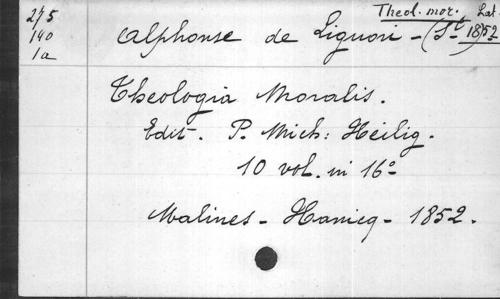 275
140
1a
Theol. mor. Lat.
1852
Alphonse de Liguori - (St)
Theologia Moralis.
Edit. P. Mich: Heilig.
10 vol. in 16º
Malines - Hanicq - 1852.